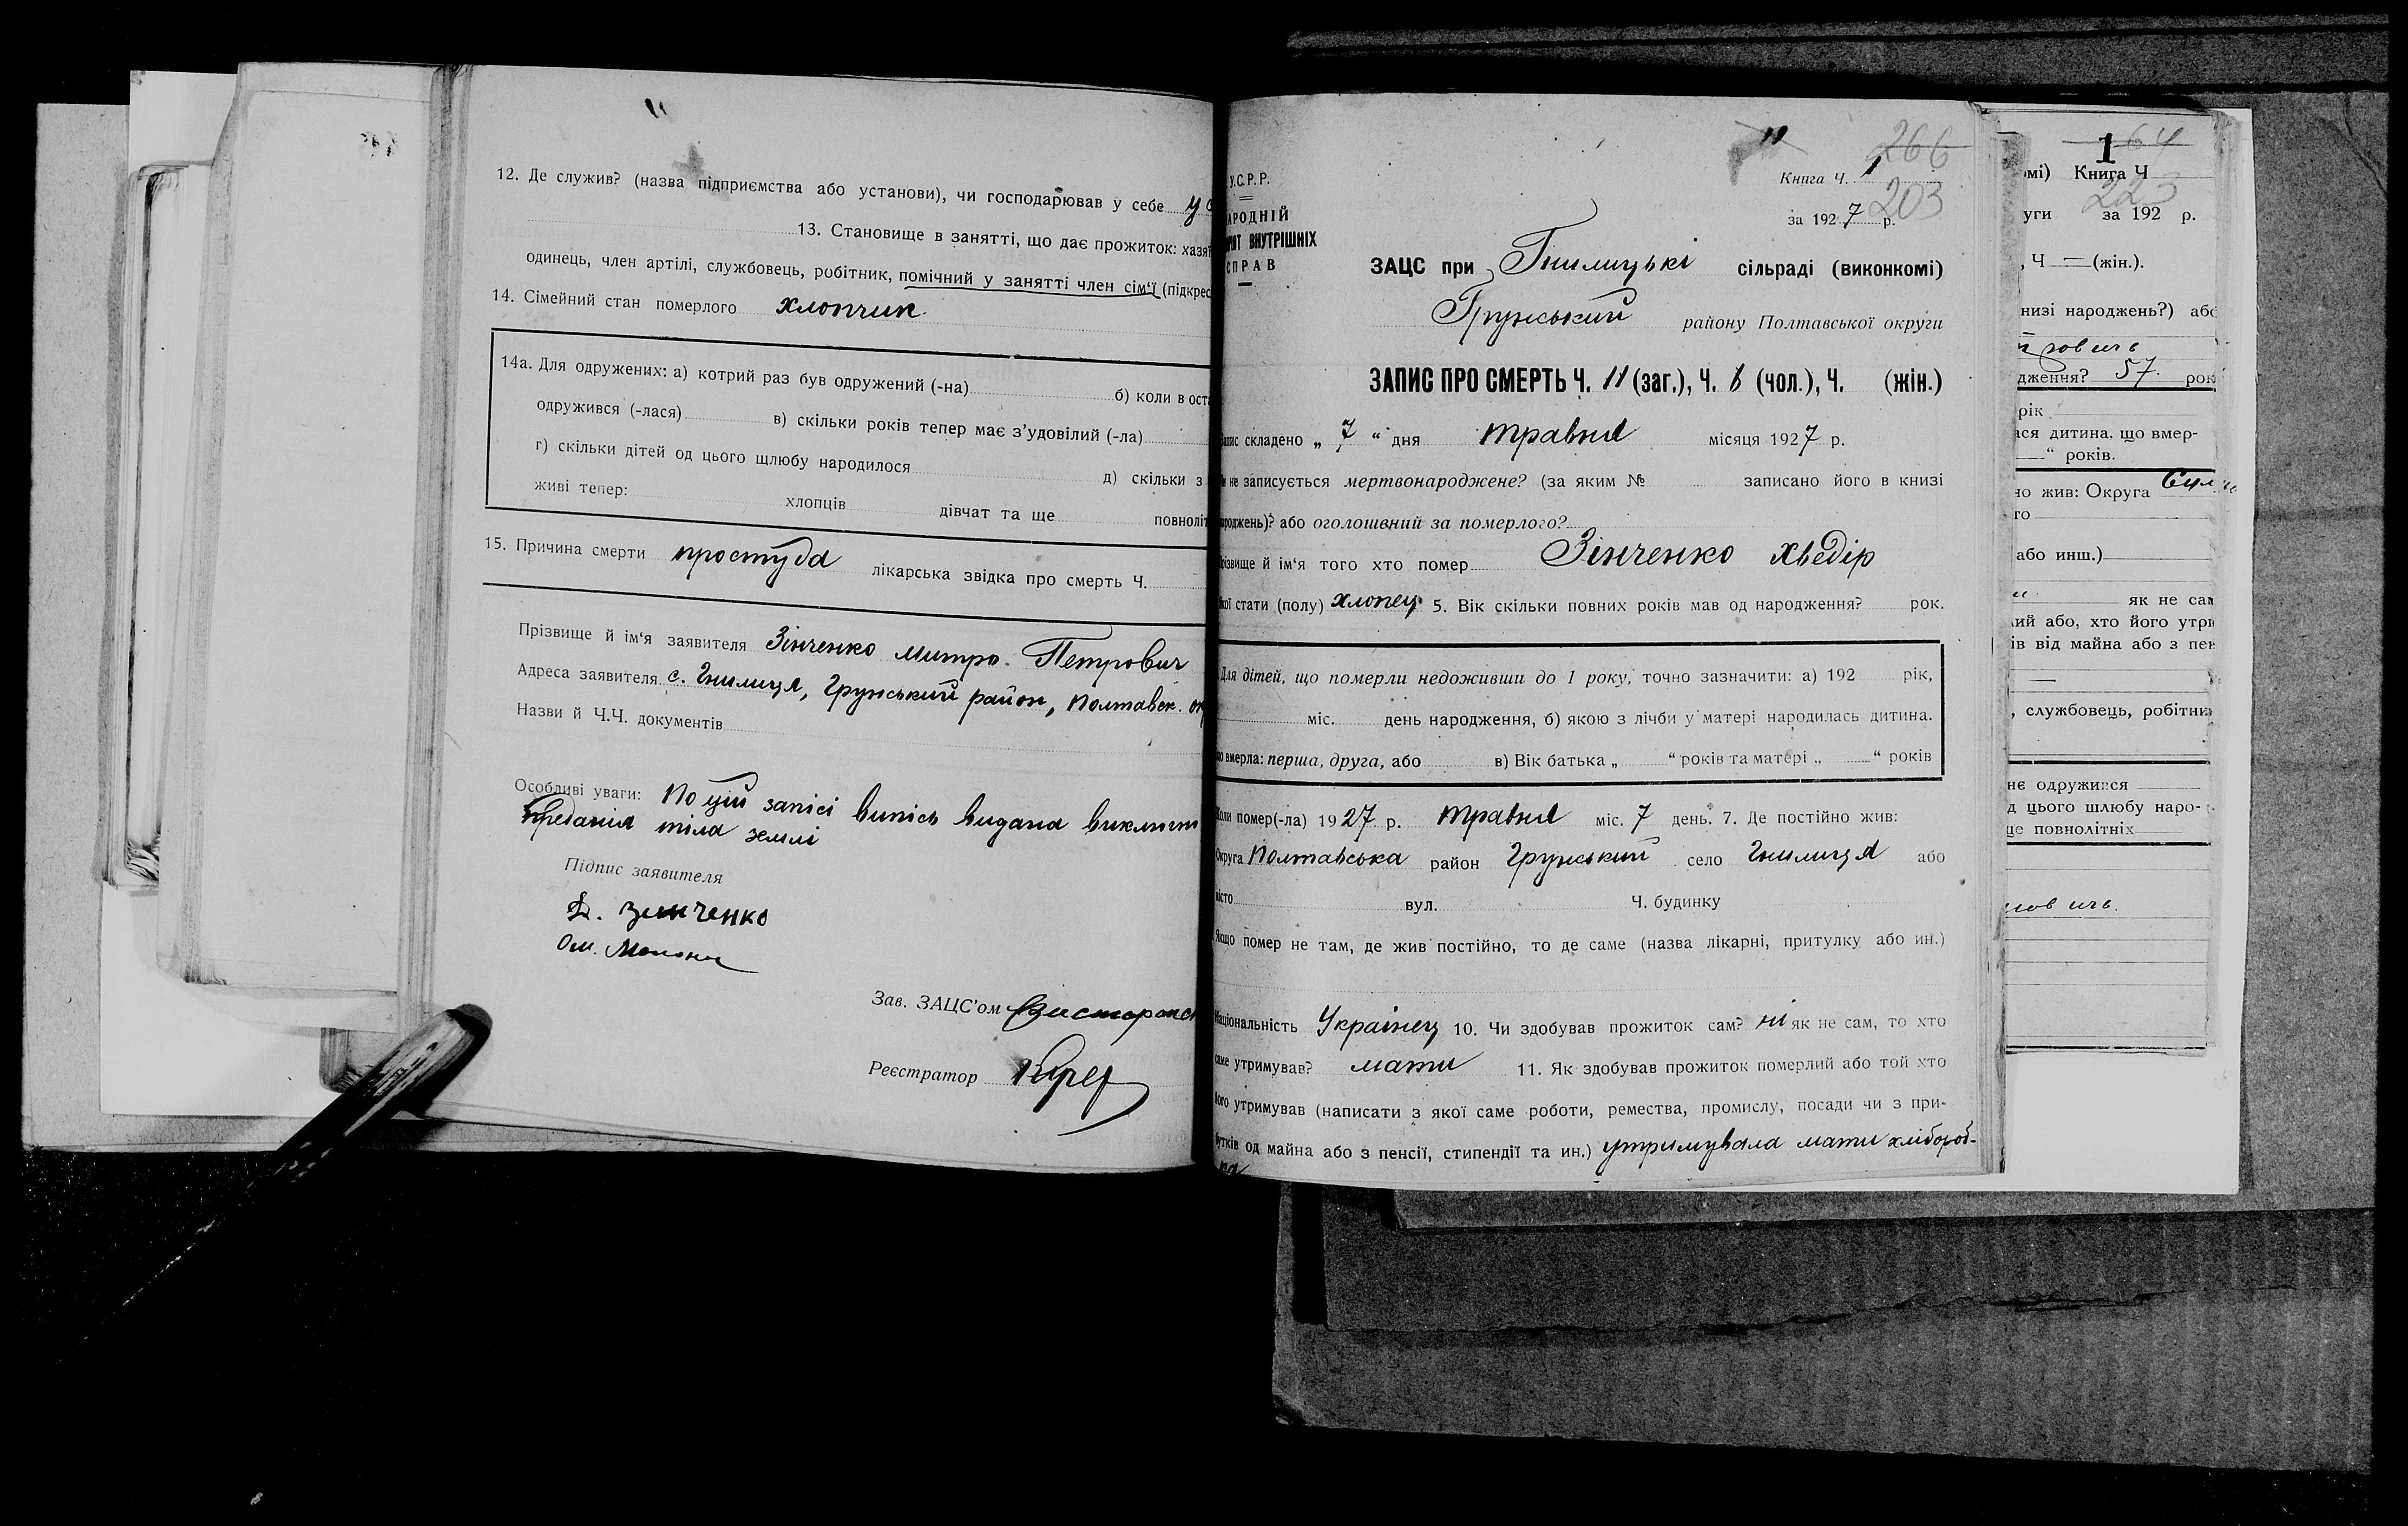 12. Де служив? (назва підприємства або установи), чи господарював у себе у с
13. Становище в занятті, що дає прожиток: хазяї
одинець, член артілі, службовець, робітник, помічний у занятті член сім'ї (підкрес
14. Сімейний стан померлого хлопчик
14а. Для одружених: а) котрий раз був одружений (-на) б) коли в оста
одружився (-лася) в) скільки років тепер має з'удовілий (-ла)
г) скільки дітей од цього щлюбу народилося д) скільки з
живі тепер: хлопців дівчат та ще повноліт
15. Причина смерти простуда лікарська звідка про смерть Ч.
Прізвище й ім'я заявителя Зінченко Митро Петрович
Адреса заявителя с. Гнилиця, Грунський район, Полтавск. ок
Назви й Ч.Ч. документів
Особливі уваги: По цій запісі випісь видана виключн
предания тіла землі
Підпис заявителя
Д. Зинченко
Зав. ЗАЦС'ом
Реєстратор
У.С.Р.Р.
АРОДНІЙ
РІЯТ ВНУТРІШНІХ
СПРАВ
11
266
Книга Ч. 1
203
за 1927 р.
ЗАЦС при Гнилицькі сільраді (виконкомі)
Грунський району Полтавської округи
ЗАПИС ПРО СМЕРТЬ Ч. 11 (заг.), Ч. 6 (чол.), Ч. (жін.)
Запис складено „ 7 “ дня травня місяця 1927 р.
и не записується мертвонароджене? (за яким № записано його в книзі
ароджень)? або оголошвний за померлого?
різвище й ім'я того хто помер Зінченко Хведір
кої стати (полу) хлопец 5. Вік скільки повних років мав од народження? рок.
Для дітей, що померли недоживши до 1 року, точно зазначити: а) 192 рік,
міс. день народження, б) якою з лічби у матері народилась дитина.
що вмерла: перша, друга, або в) Вік батька „ “ років та матері „ “ років
Коли помер(-ла) 1927 р. травня міс. 7 день. 7. Де постійно жив:
Округа Полтавська район Грунський село Гнилиця або
місто вул. Ч. будинку
Якщо помер не там, де жив постійно, то де саме (назва лікарні, притулку або ин.)
Національність Українец 10. Чи здобував прожиток сам? ні як не сам, то хто
саме утримував? мати 11. Як здобував прожиток померлий або той хто
його утримував (написати з якої саме роботи, ремества, промислу, посади чи з при-
бутків од майна або з пенсії, стипендії та ин.) утримувала мати хлібороб-
ка
1 64
омі) Книга Ч
223
уги за 192 р.
, Ч — (жін.).
низі народжень?) або
дження? 57 рок
рік
ася дитина, що вмер-
— “ років.
но жив: Округа
го
або инш.)
як не сам
ий або, хто його утри
ів від майна або з пен
—
, службовець, робітник
не одружився
д цього шлюбу наро-
ще повнолітніх